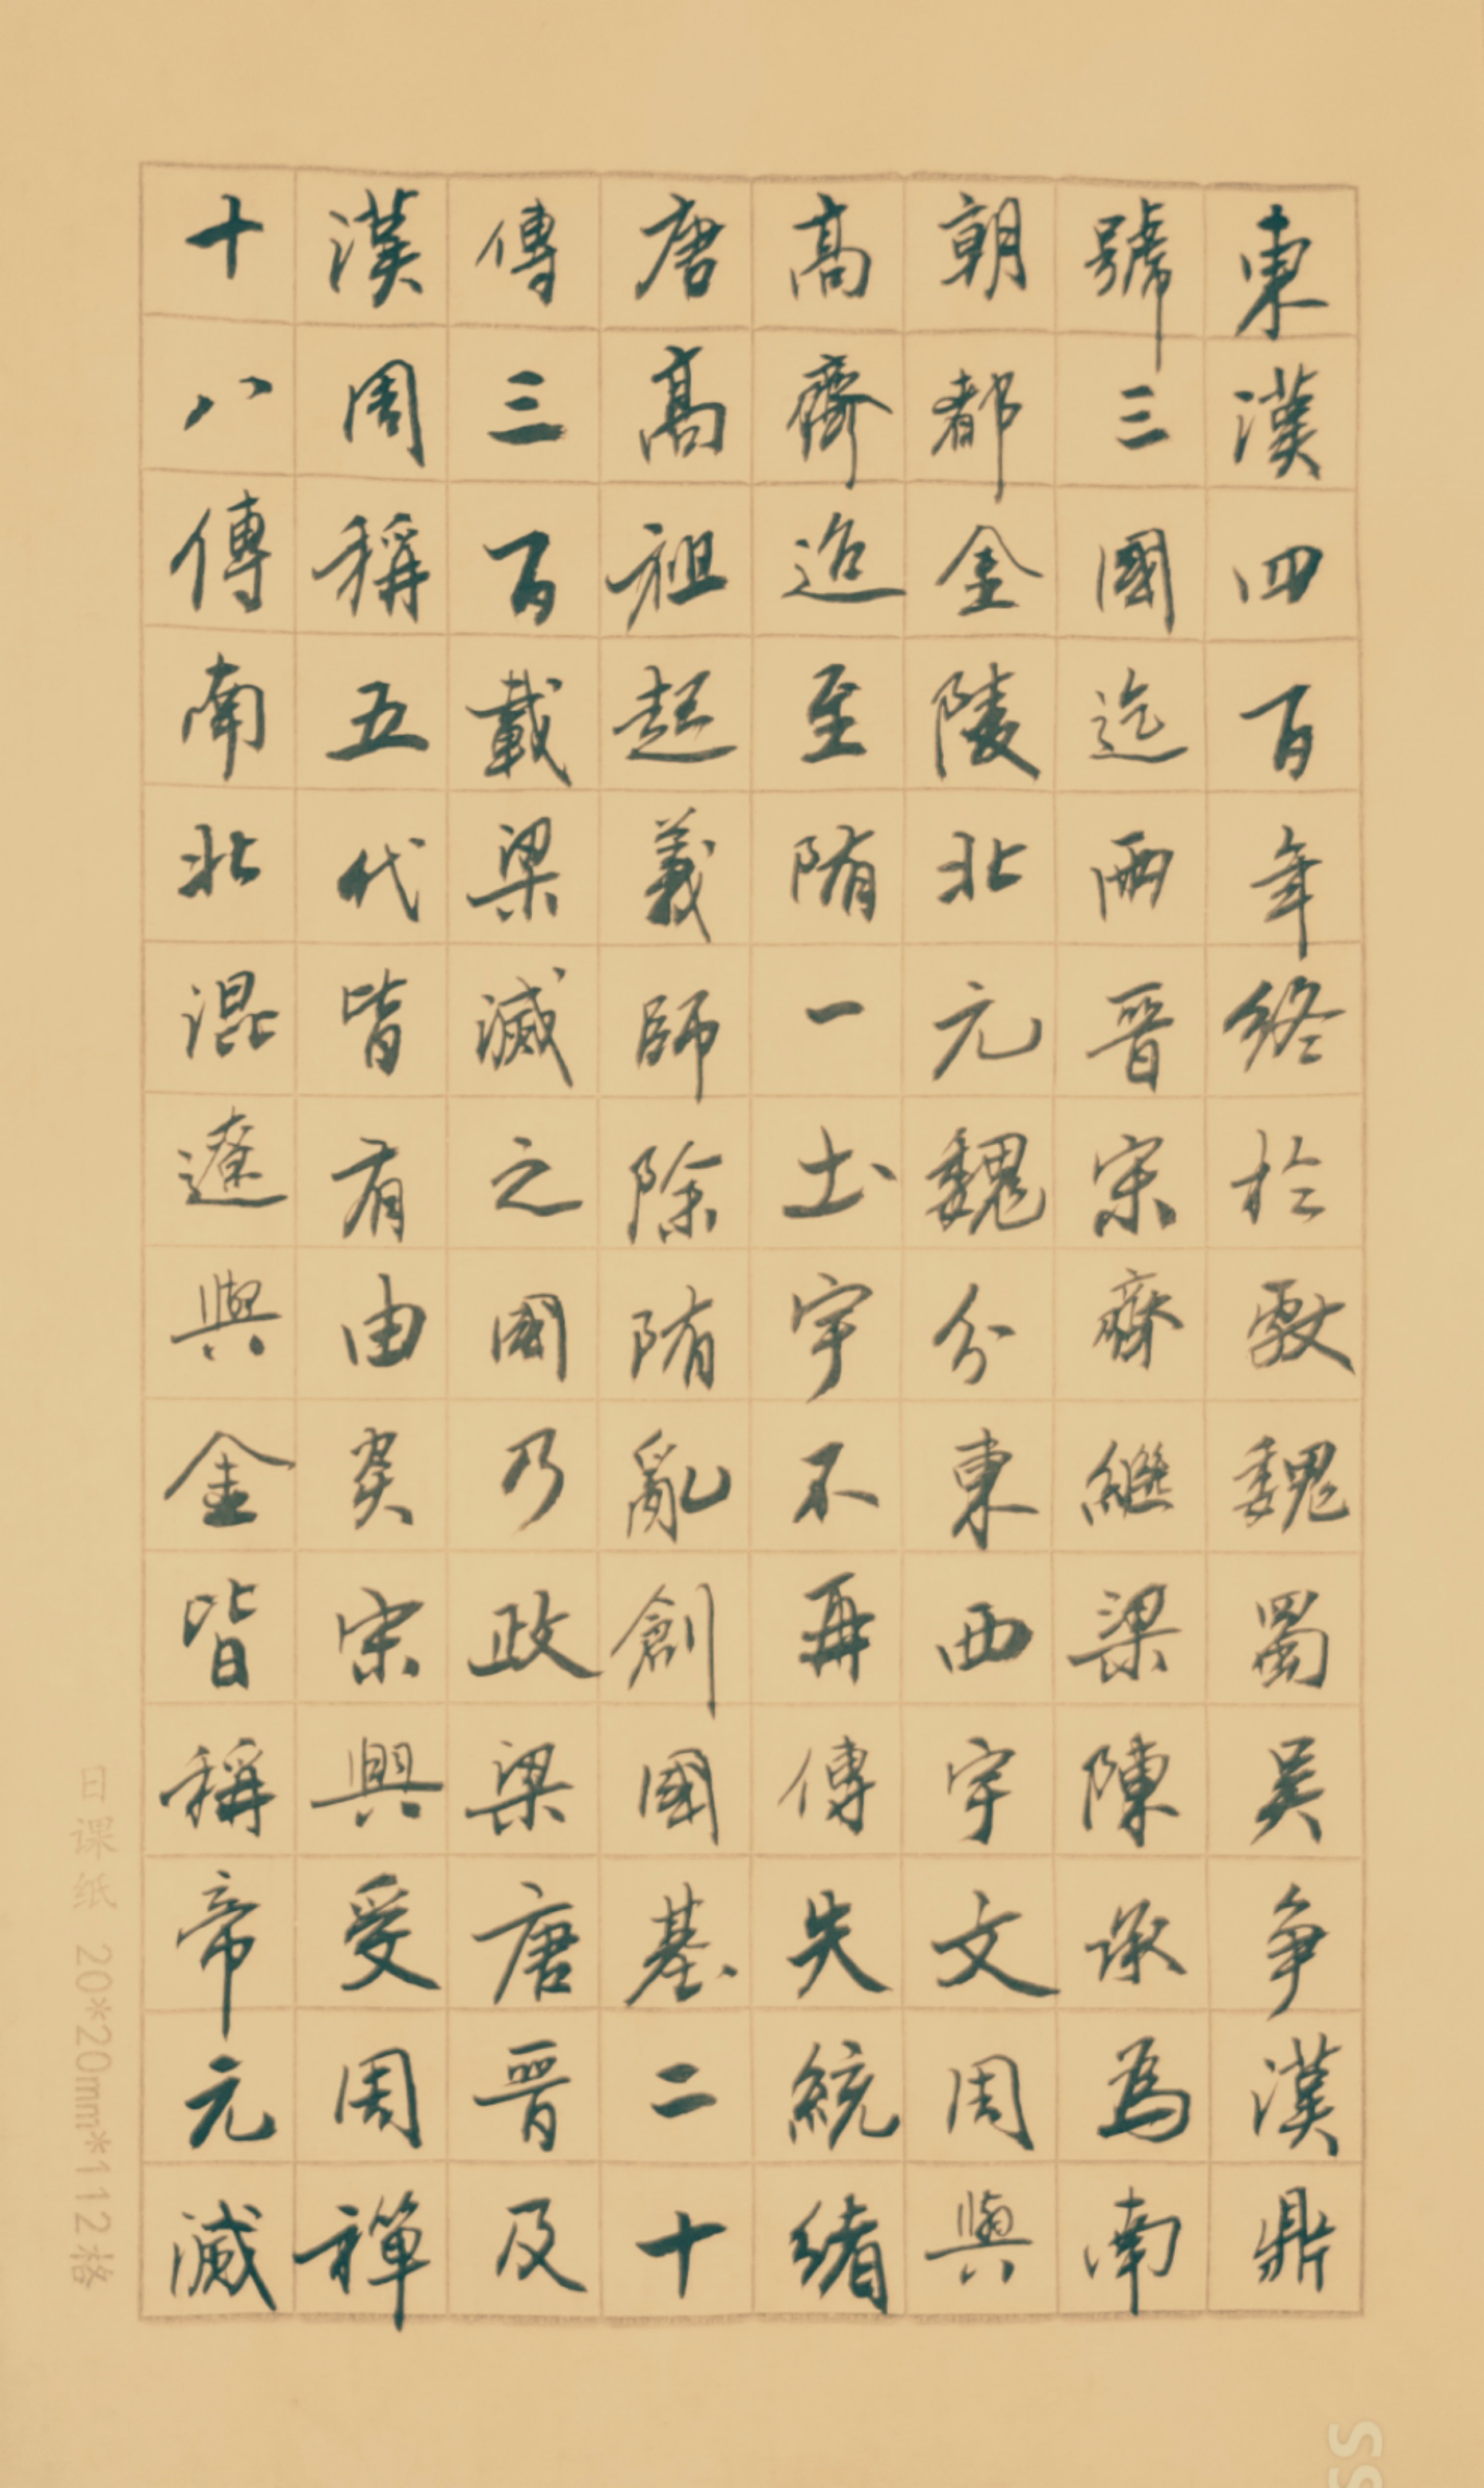 東漢四百年終於獻魏蜀吳争漢鼎
號三國迄兩晉宋齊繼梁陳承為南
朝都金陵北元魏分東西宇文周與
髙齊迨至隋一土宇不再傳失統緒
唐髙祖起義師除隋亂創國基二十
傳三百載梁滅之國乃政梁唐晉及
漢周稱五代皆有由炎宋興受周禪
十八傳南北混遼與金皆稱帝元滅
日课纸 20*20mm*112格
SS